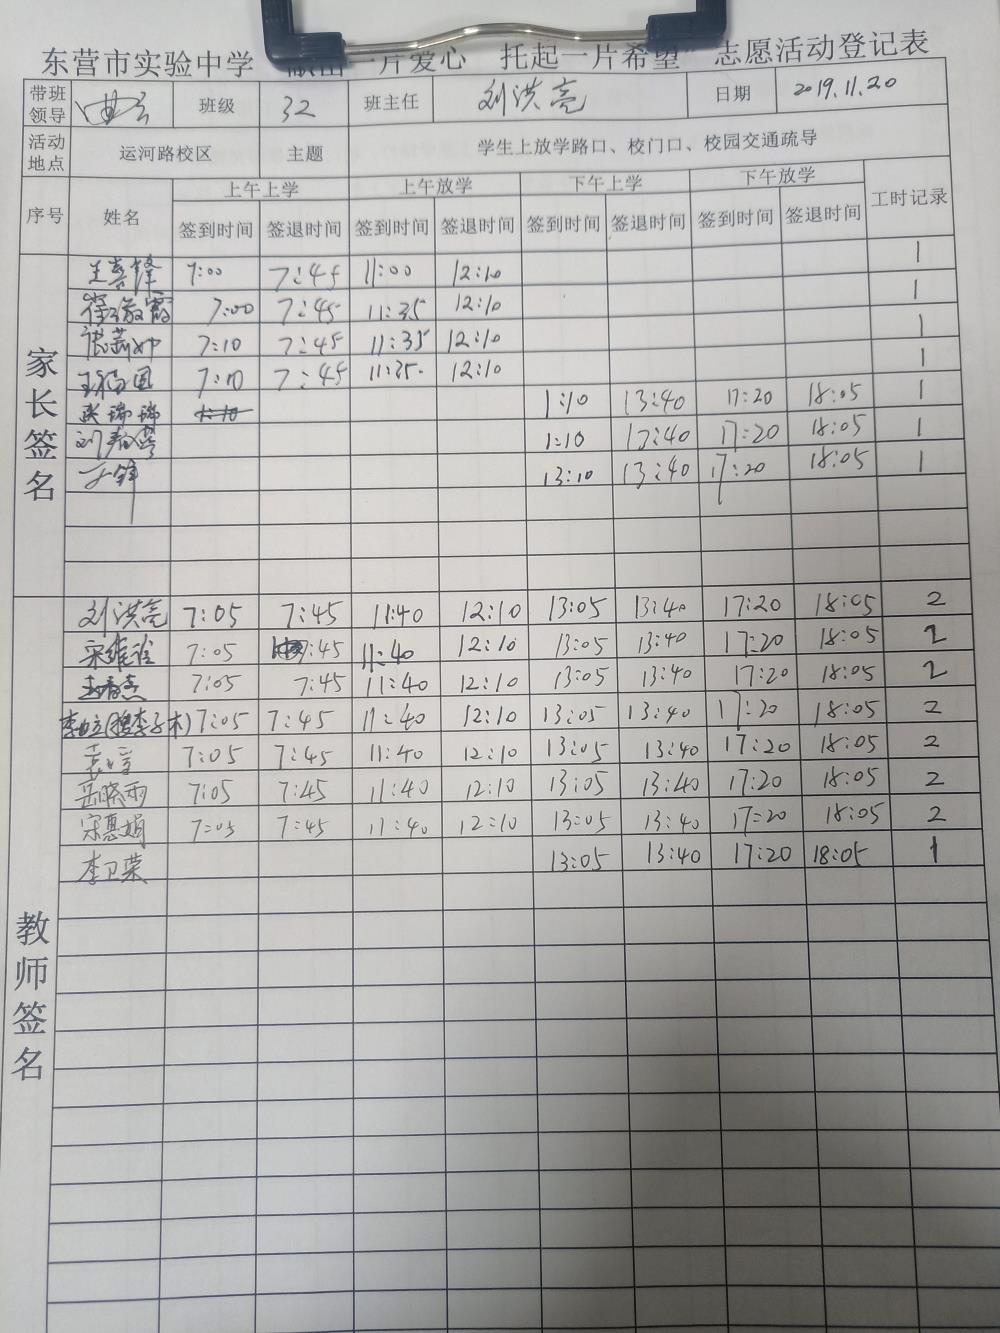 东营市实验中学"献出一片爱心 托起一片希望"志愿活动登记表
带班领导 班级 32 班主任 刘洪亮 日期 2019.11.20
活动地点 运河路校区 主题 学生上放学路口、校门口、校园交通疏导
序号 姓名 上午上学 上午放学 下午上学 下午放学 工时记录
签到时间 签退时间 签到时间 签退时间 签到时间 签退时间 签到时间 签退时间
家长签名
王喜锋 7:00 7:45 11:00 12:10 1
7:00 7:45 11:35 12:10 1
7:10 7:45 11:35 12:10 1
7:10 7:45 11:35 12:10 1
1:10 13:40 17:20 18:05 1
1:10 13:40 17:20 18:05 1
13:10 13:40 17:20 18:05 1
教师签名
刘洪亮 7:05 7:45 11:40 12:10 13:05 13:40 17:20 18:05 2
7:05 7:45 11:40 12:10 13:05 13:40 17:20 18:05 2
7:05 7:45 11:40 12:10 13:05 13:40 17:20 18:05 2
7:05 7:45 11:40 12:10 13:05 13:40 17:20 18:05 2
7:05 7:45 11:40 12:10 13:05 13:40 17:20 18:05 2
岳晓雨 7:05 7:45 11:40 12:10 13:05 13:40 17:20 18:05 2
宋惠娟 7:05 7:45 11:40 12:10 13:05 13:40 17:20 18:05 2
李卫荣 13:05 13:40 17:20 18:05 1